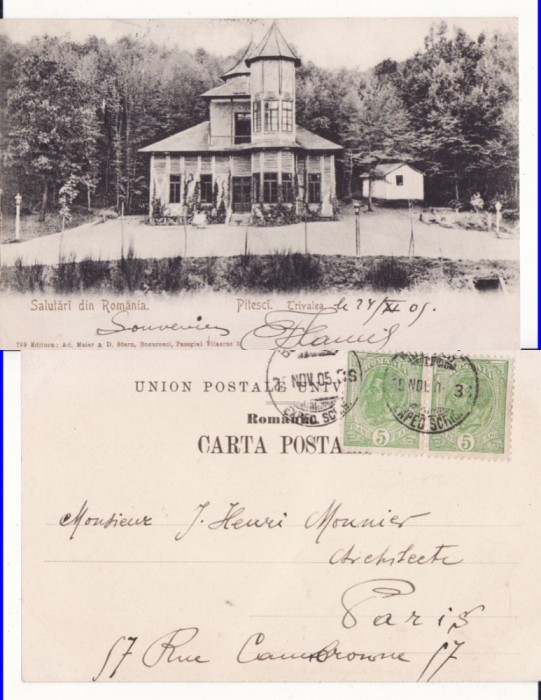 Salutări din România. Pitescĭ. Trivalea. le 24/XI 05.
Souvenirs
799 Editura: Ad. Maier & D. Stern, Bucuresci, Pasagiul Vilacros
UNION POSTALE UNIV
România.
CARTA POSTA
NOV. 05. 3S
EXPED. SCRIS
NOV. 0 3
EXPED SCRI
ROMANIA
5 5
Monsieur J. Henri Mounier
Architecte
Paris
57 Rue Cambronne 57